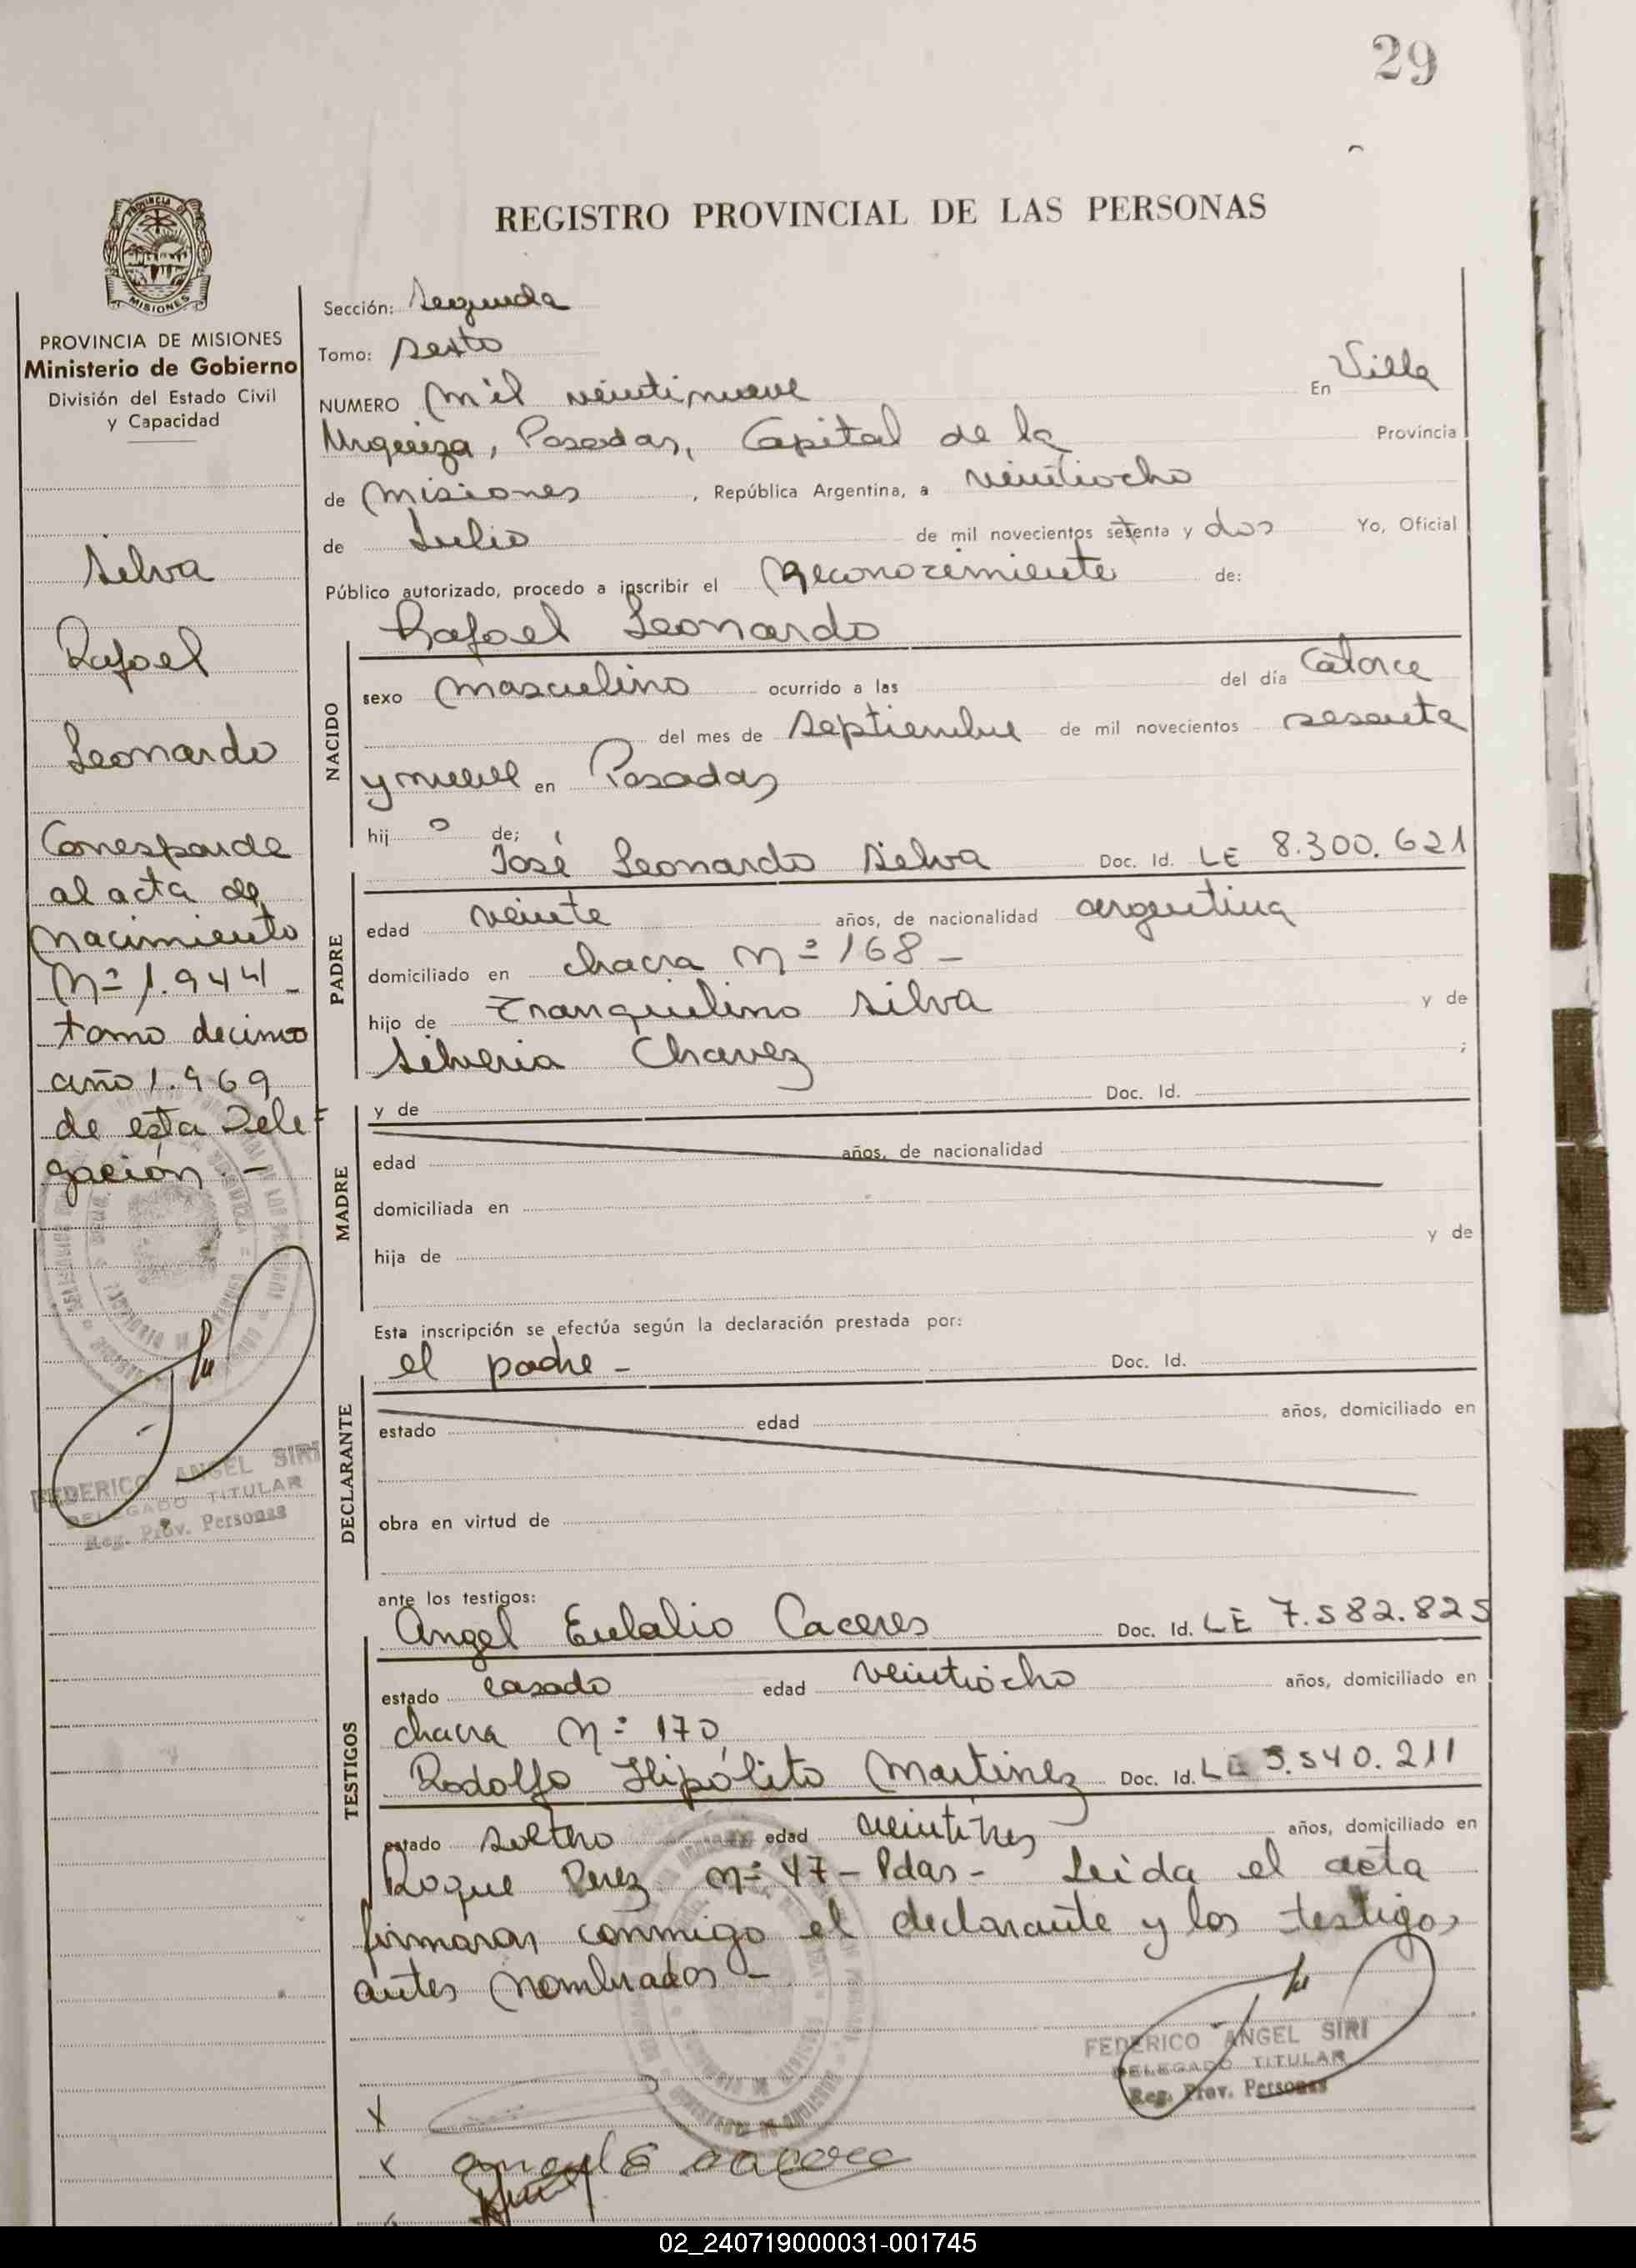 29
REGISTRO PROVINCIAL DE LAS PERSONAS
PROVINCIA DE MISIONES
Ministerio de Gobierno
División del Estado Civil
y Capacidad
Silva
Rafael
Leonardo
Corresponde
al acta de
nacimiento
Nº 1.944 -
tomo decimo
año 1.969
de esta Dele-
gación. -
FEDERICO ANGEL SIRI
DELEGADO TITULAR
Reg. Prov. Personas
Sección: Segunda
Tomo: Sexto
NUMERO mil veintinueve En Villa
Urquiza, Posadas, Capital de la Provincia
de Misiones, República Argentina, a veintiocho
de Julio de mil novecientos setenta y dos Yo, Oficial
Público autorizado, procedo a inscribir el Reconocimiento de:
Rafael Leonardo
NACIDO
sexo masculino ocurrido a las del día Catorce
del mes de Septiembre de mil novecientos sesenta
y nueve en Posadas
hij o de;
José Leonardo Silva Doc. Id. LE 8.300.621
PADRE
edad veinte años, de nacionalidad argentina
domiciliado en chacra Nº 168 -
hijo de Tranquilino Silva y de
Silveria Chavez ;
MADRE
y de Doc. Id.
edad años, de nacionalidad
domiciliada en
hija de y de
Esta inscripción se efectúa según la declaración prestada por:
el padre - Doc. Id.
DECLARANTE
estado edad años, domiciliado en
obra en virtud de
ante los testigos:
Angel Eulalio Caceres Doc. Id. LE 7.582.825
TESTIGOS
estado casado edad veintiocho años, domiciliado en
chacra Nº 170
Rodolfo Hipólito Martinez Doc. Id. LE 5.540.211
estado soltero edad veintitres años, domiciliado en
Roque Perez Nº 47 - Pdas - Leida el acta
firmaron conmigo el declarante y los testigos
antes nombrados -
FEDERICO ANGEL SIRI
DELEGADO TITULAR
Reg. Prov. Personas
x
x angel E caceres
02_240719000031-001745